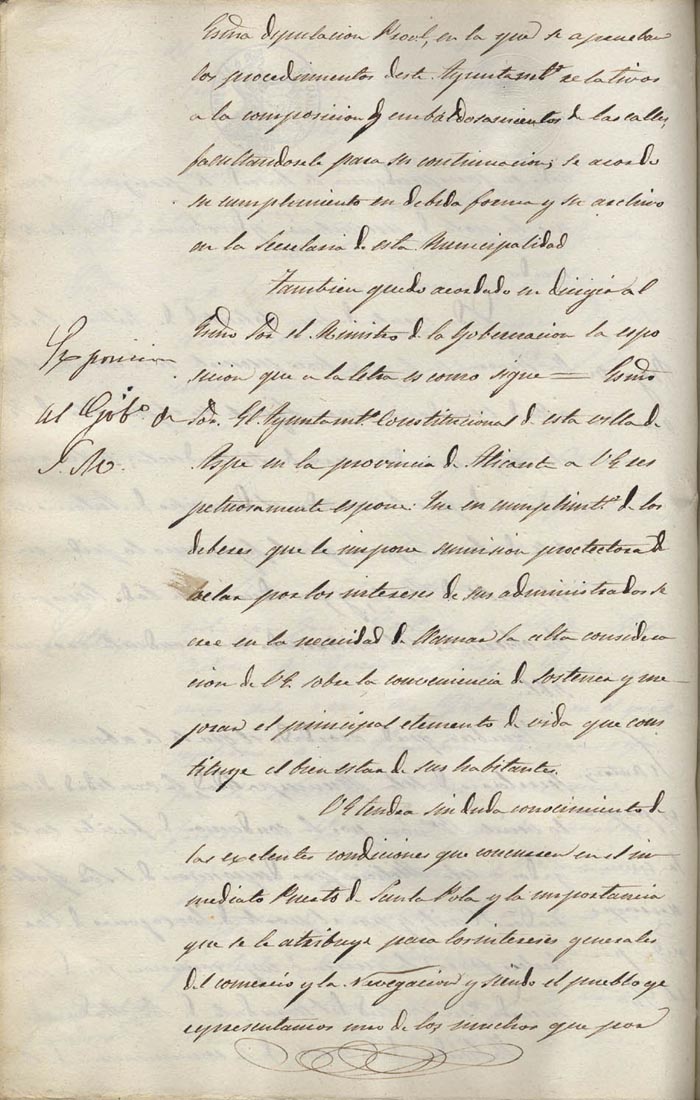 Exma Diputacion Provl, en la que se aprueban
los procedimientos deste Ayuntamto relativos
a la composicion y embaldosamientos de las calles,
facultandosele para su continuacion; se acordo
su cumplimiento en debida forma y su archivo
en la Secretaria de esta Municipalidad
Tambien quedo acordado en dirigir al
Exmo Sor el Ministro de la Gobernacion la espo
sicion que a la letra es como sigue = Exmo
Sor. El Ayuntamto Constitucional de esta villa de
Aspe en la provincia de Alicante a V.E. res
petuosamente espone: Que en cumplimto de los
deberes que le impone su mision proctectora de
velar por los intereses de sus administrados se
cree en la necesidad de llamar la alta considera
cion de V.E. sobre la conveniencia de sostener y me-
jorar el principal elemento de vida que cons
tituye el bien estar de sus habitantes.
V.E. tendra sin duda conocimiento de
las exelentes condiciones que concurren en el in
mediato Puerto de Santa Pola y la importancia
que se le atribuye para los intereses generales
del comercio y la Navegacion y siendo el pueblo qe
representamos uno de los muchos que por
Exposicion
al Gobo. de
S. M.